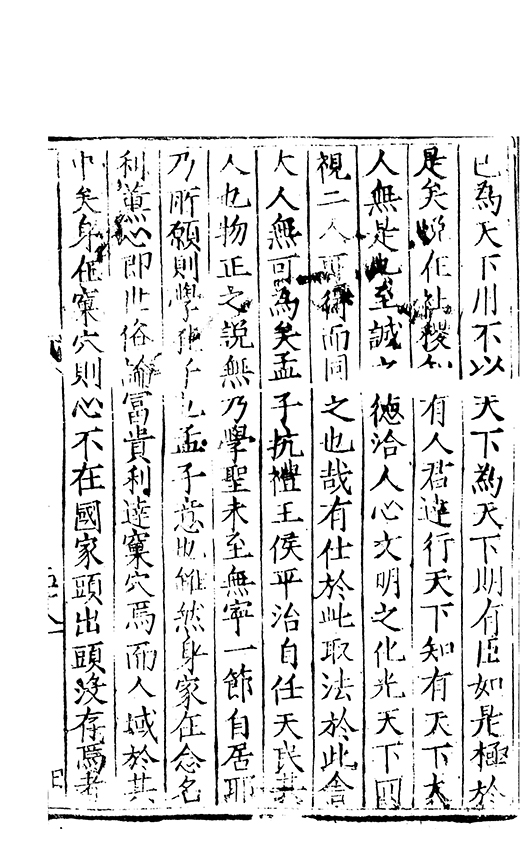 已為天下用不以天下為天下期有臣如是極於
是矣雖任社稷有人君達行天下知有天下大
人無是也至誠之德洽人心文明之化光天下四
視二人可得而同之也哉有仕於此取法於此舍
大人無可為矣孟子抗禮王侯平治自任天民其
人也物正之說無乃學聖未至無寧一節自居耶
乃所願則學孔子也孟子意也雖然身家在念名
利薰心即世俗論富貴利達窠穴焉而人域於其
中矣身在窠穴則心不在國家頭出頭沒存焉者